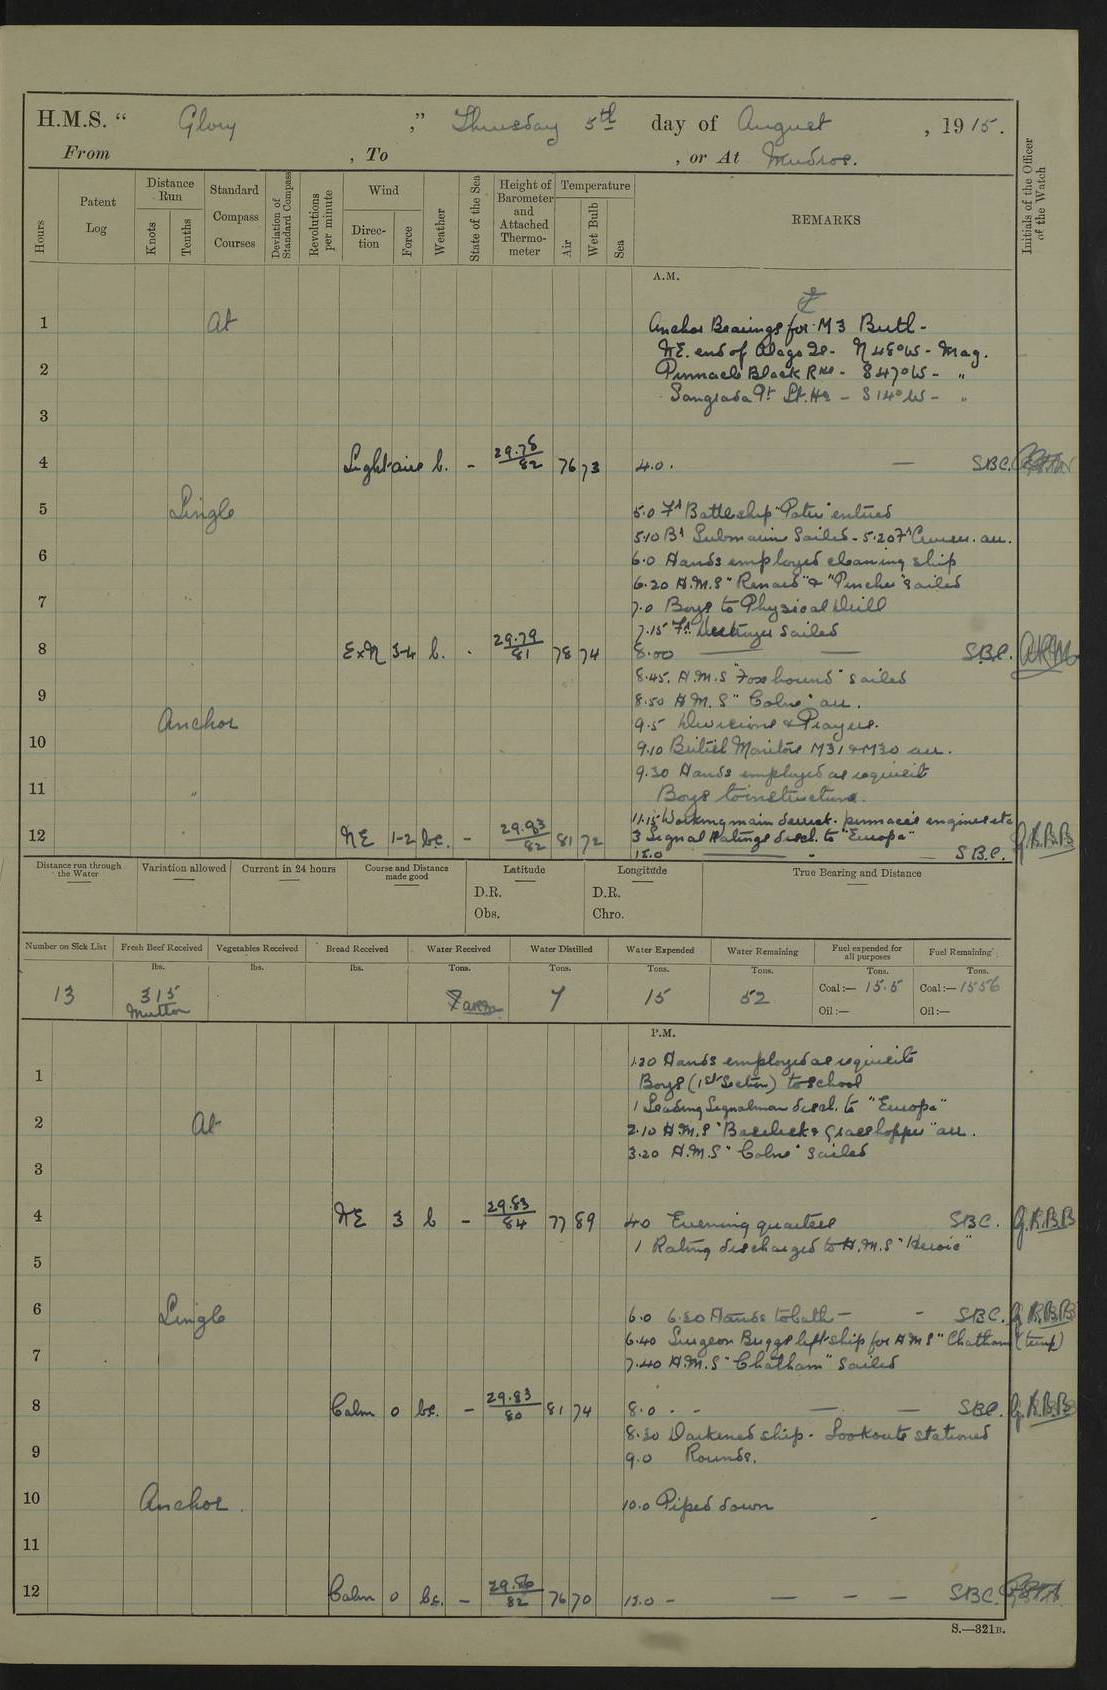 H.M.S. “ Glory ,” Thursday 5th day of August , 1915.
From , To , or At Mudros.
Hours
Patent Log
Distance Run
Knots
Tenths
Standard Compass Courses
Deviation of Standard Compass
Revolutions per minute
Wind
Direction
Force
Weather
State of the Sea
Height of Barometer and Attached Thermometer
Temperature
Air
Wet Bulb
Sea
REMARKS
Initials of the Officer of the Watch
A.M.
1 At Anchor Bearings for M3 Berth -
NE. end of Is - N 48° W - Mag.
2 Pinnacle Black Rk - S 47° W - "
Sangrada Pt Lt. Hs - S 14° W - "
3
4 Light airs b. - 29.78 82 76 73 4.0. — SBC.
5 Single 5.0 Fh Battleship "Patrie" entered
5.10 Bh Submarine Sailed - 5.20 Fh Cruiser. arr.
6 6.0 Hands employed cleaning ship
6.20 H.M.S "Renard" & "Pincher" sailed
7 7.0 Boys to Physical Drill
7.15 Fh Destroyer Sailed
8 ExN 3-4 b. - 29.79 81 78 74 8.00 — — SBC.
8.45. H.M.S "Foxhound" sailed
9 8.50 H.M.S "Colne" arr.
Anchor 9.5 Divisions & Prayers.
10 9.10 British Monitors M31 & M30 arr.
9.30 Hands employed as requisite
11 " Boys to instructions.
11.15 Working main derrick. pinnaces engines etc
12 NE 1-2 bc. - 29.83 82 81 72 3 Signal Ratings disch. to "Europa"
12.0 — - — SBC. G.R.B.B
Distance run through the Water
Variation allowed
Current in 24 hours
Course and Distance made good
Latitude
D.R.
Obs.
Longitude
D.R.
Chro.
True Bearing and Distance
Number on Sick List
Fresh Beef Received
Vegetables Received
Bread Received
Water Received
Water Distilled
Water Expended
Water Remaining
Fuel expended for all purposes
Fuel Remaining
lbs. lbs. lbs. Tons. Tons. Tons. Tons. Tons. Tons.
13 315 Mutton 7 15 52 Coal:— 15.5 Coal:— 1556
Oil:— Oil:—
P.M.
1.20 Hands employed as requisite
1 Boys (1st Section) to school
1 Leading Signalman disch. to "Europa"
2 At 2.10 H.M.S "Basilisk & Grasshopper" arr.
3 3.20 H.M.S "Colne" Sailed
4 NE 3 b - 29.83 84 77 89 4.0 Evening quarters SBC. G.R.B.B
1 Rating discharged to H.M.S "Heroic"
5
6 Single 6.0 6.20 Hands to bathe — - SBC. G.R.B.B
6.40 Surgeon Buggs left ship for H.M.S "Chatham" (temp)
7 7.40 H.M.S "Chatham" Sailed
8 Calm 0 bc. - 29.83 80 81 74 8.0 - - — — SBC. G.R.B.B
8.30 Darkened ship - Lookouts stationed
9 9.0 Rounds.
10 Anchor. 10.0 Piped down
11
12 Calm 0 bc. - 29.86 82 76 70 12.0 - — — — SBC.
S.—321B.